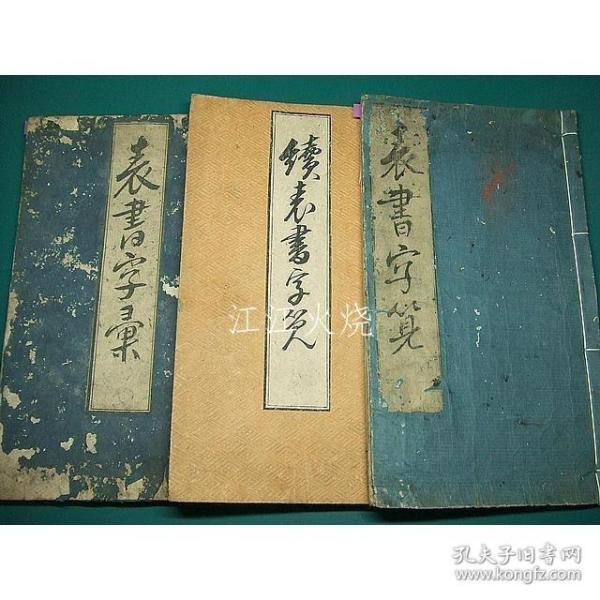 表書字彙
續表書字覧
表書字覧
江江火烧
孔夫子旧书网
www.kongfz.com